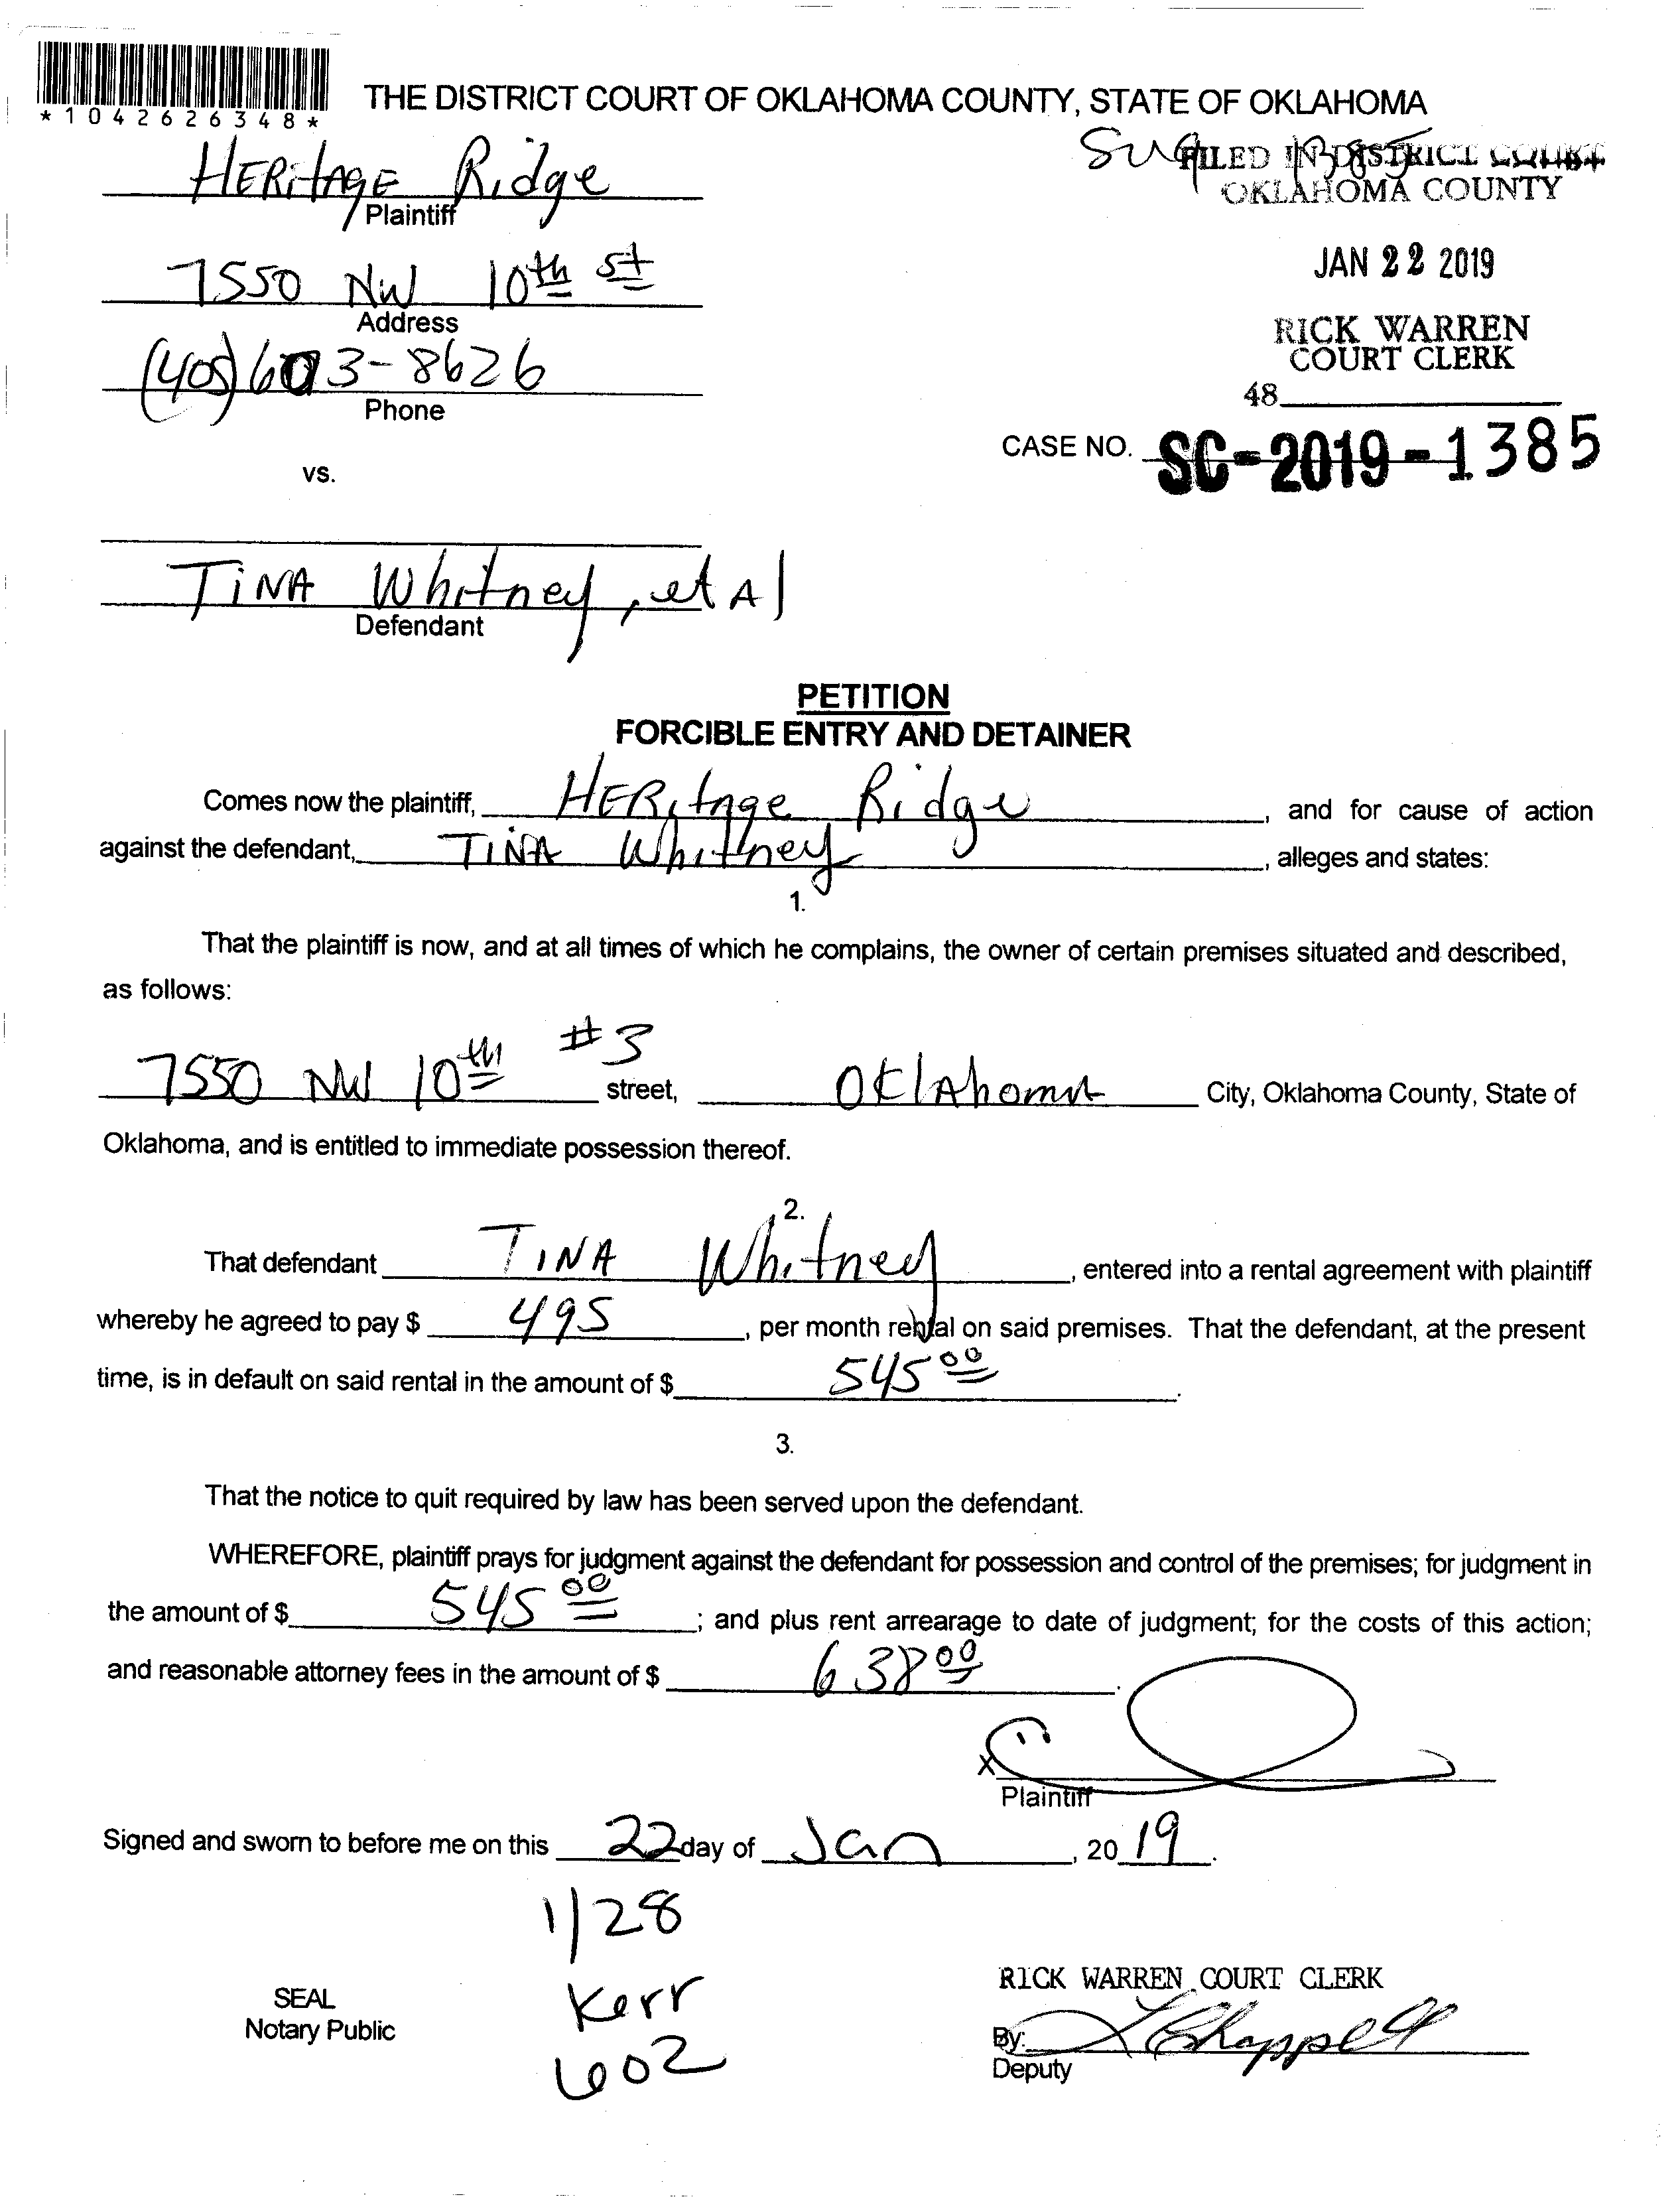 *1042626348*
THE DISTRICT COURT OF OKLAHOMA COUNTY, STATE OF OKLAHOMA
HERitAGE Ridge
Plaintiff
FILED IN DISTRICT COURT
OKLAHOMA COUNTY
7550 NW 10th st
Address
JAN 22 2019
(405) 603-8626
Phone
RICK WARREN
COURT CLERK
48
CASE NO. SC-2019-1385
vs.
TiNA Whitney, et Al
Defendant
PETITION
FORCIBLE ENTRY AND DETAINER
Comes now the plaintiff, HERitage Ridge, and for cause of action
against the defendant, TiNA Whitney, alleges and states:
1.
That the plaintiff is now, and at all times of which he complains, the owner of certain premises situated and described,
as follows:
7550 NW 10th #3 street, OklAhomA City, Oklahoma County, State of
Oklahoma, and is entitled to immediate possession thereof.
2.
That defendant TiNA Whitney, entered into a rental agreement with plaintiff
whereby he agreed to pay $ 495, per month rental on said premises. That the defendant, at the present
time, is in default on said rental in the amount of $ 545 00.
3.
That the notice to quit required by law has been served upon the defendant.
WHEREFORE, plaintiff prays for judgment against the defendant for possession and control of the premises; for judgment in
the amount of $ 545 00; and plus rent arrearage to date of judgment; for the costs of this action;
and reasonable attorney fees in the amount of $ 638 00.
X
Plaintiff
Signed and sworn to before me on this 22 day of Jan, 2019.
1/28
Kerr
602
SEAL
Notary Public
RICK WARREN COURT CLERK
By: L Chappell
Deputy